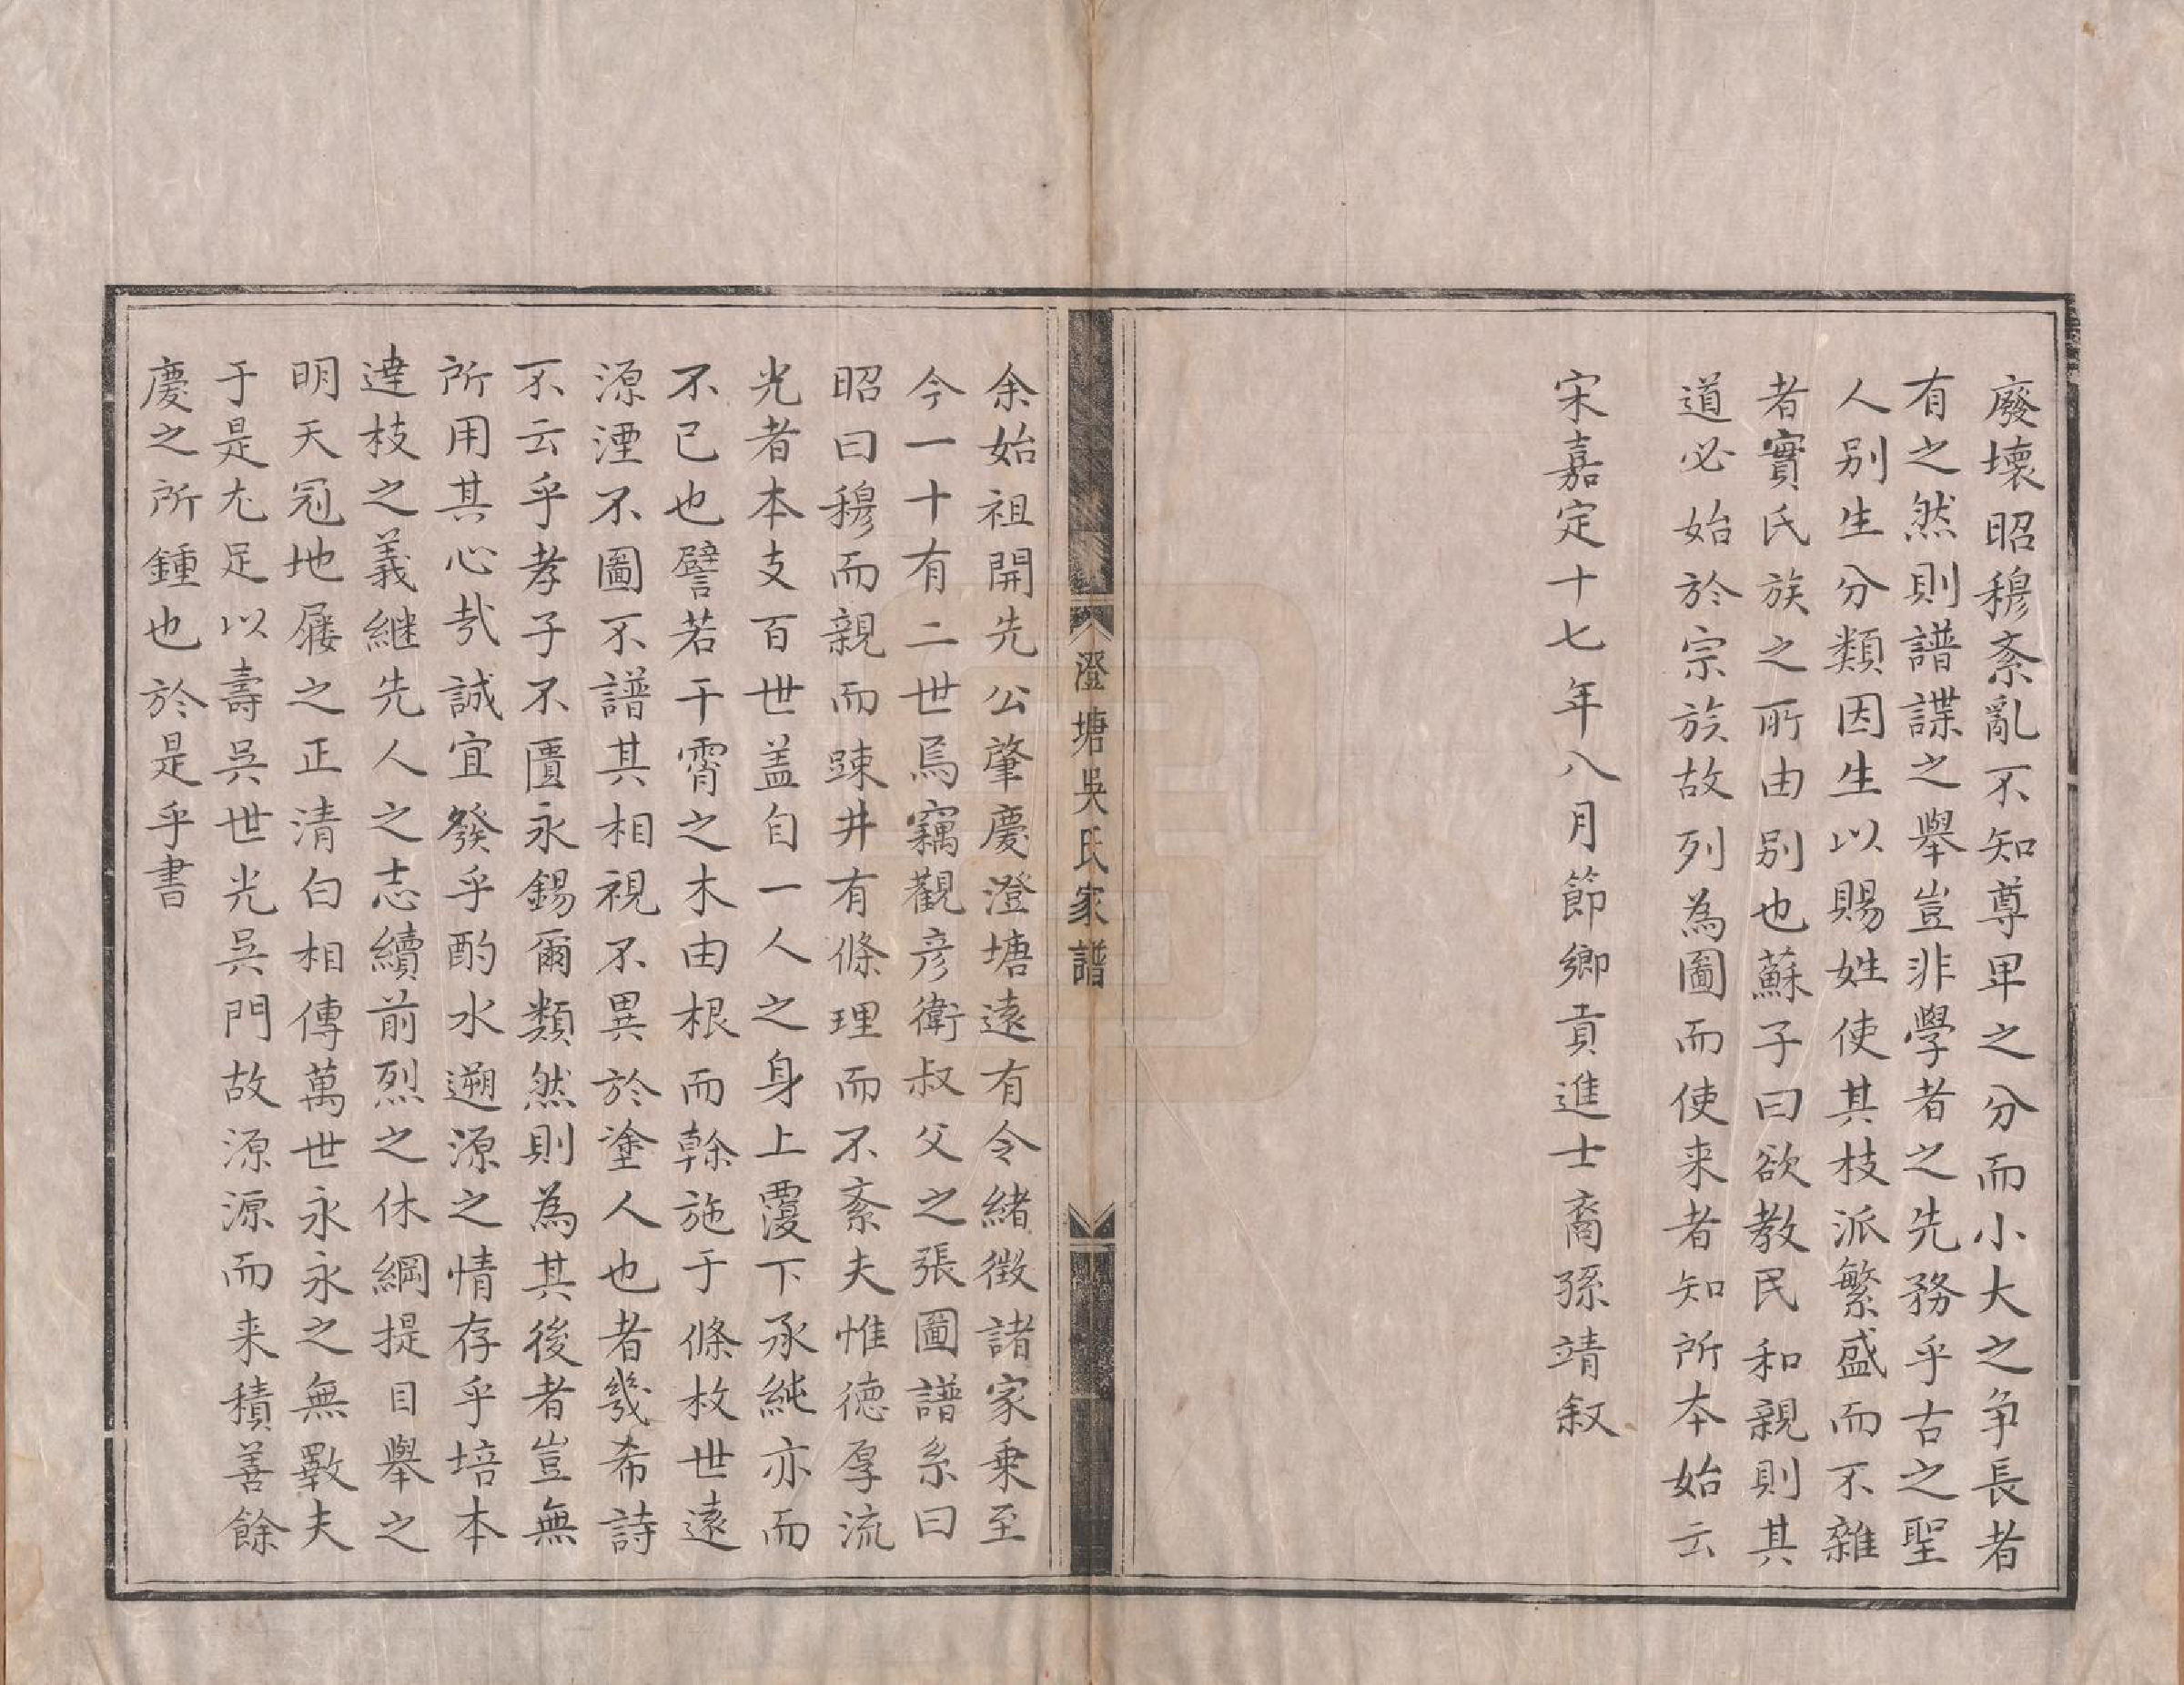 廢壞昭穆紊亂不知尊卑之分而小大之争長者
有之然則譜諜之舉豈非學者之先務乎古之聖
人别生分類因生以賜姓使其枝派繁盛而不雜
者實氏族之所由别也蘇子曰欲教民和親則其
道必始於宗族故列為圖而使来者知所本始云
宋嘉定十七年八月節鄉貢進士裔孫靖叙
澄塘吳氏家譜
余始祖開先公肇慶澄塘遠有令緒徴諸家乗至
今一十有二世焉竊觀彦衛叔父之張圖譜系曰
昭曰穆而親而踈井有條理而不紊夫惟德厚流
光者本支百世盖自一人之身上覆下承純亦而
不已也譬若干霄之木由根而榦施于條枚世遠
源湮不圖不譜其相視不異於塗人也者幾希詩
不云乎孝子不匱永錫爾類然則為其後者豈無
所用其心哉誠宜發乎酌水遡源之情存乎培本
達枝之義継先人之志續前烈之休綱提目舉之
明天冠地屨之正清白相傳萬世永永之無斁夫
于是尤足以壽吳世光吳門故源源而来積善餘
慶之所鍾也於是乎書